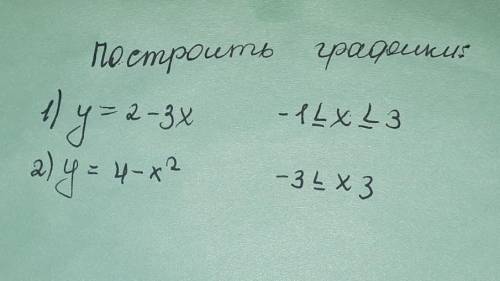 Построить графики:
1) y = 2 - 3x -1 ≤ x ≤ 3
2) y = 4 - x² -3 ≤ x 3